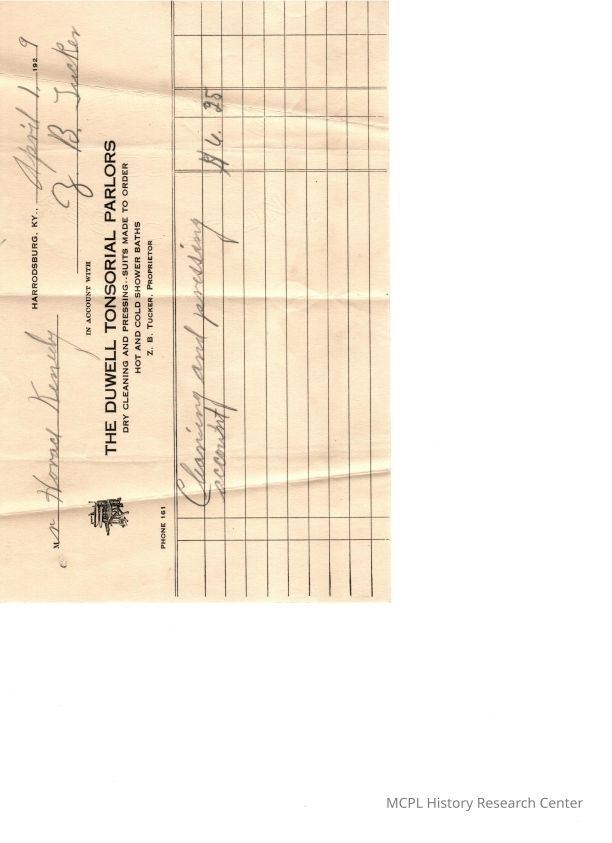 HARRODSBURG, KY., April 1, 1929
Mr Horace Kenedy
IN ACCOUNT WITH Z. B. Tucker
THE DUWELL TONSORIAL PARLORS
DRY CLEANING AND PRESSING--SUITS MADE TO ORDER
HOT AND COLD SHOWER BATHS
Z. B. TUCKER, PROPRIETOR
PHONE 161
Cleaning and pressing
account $6.25
MCPL History Research Center